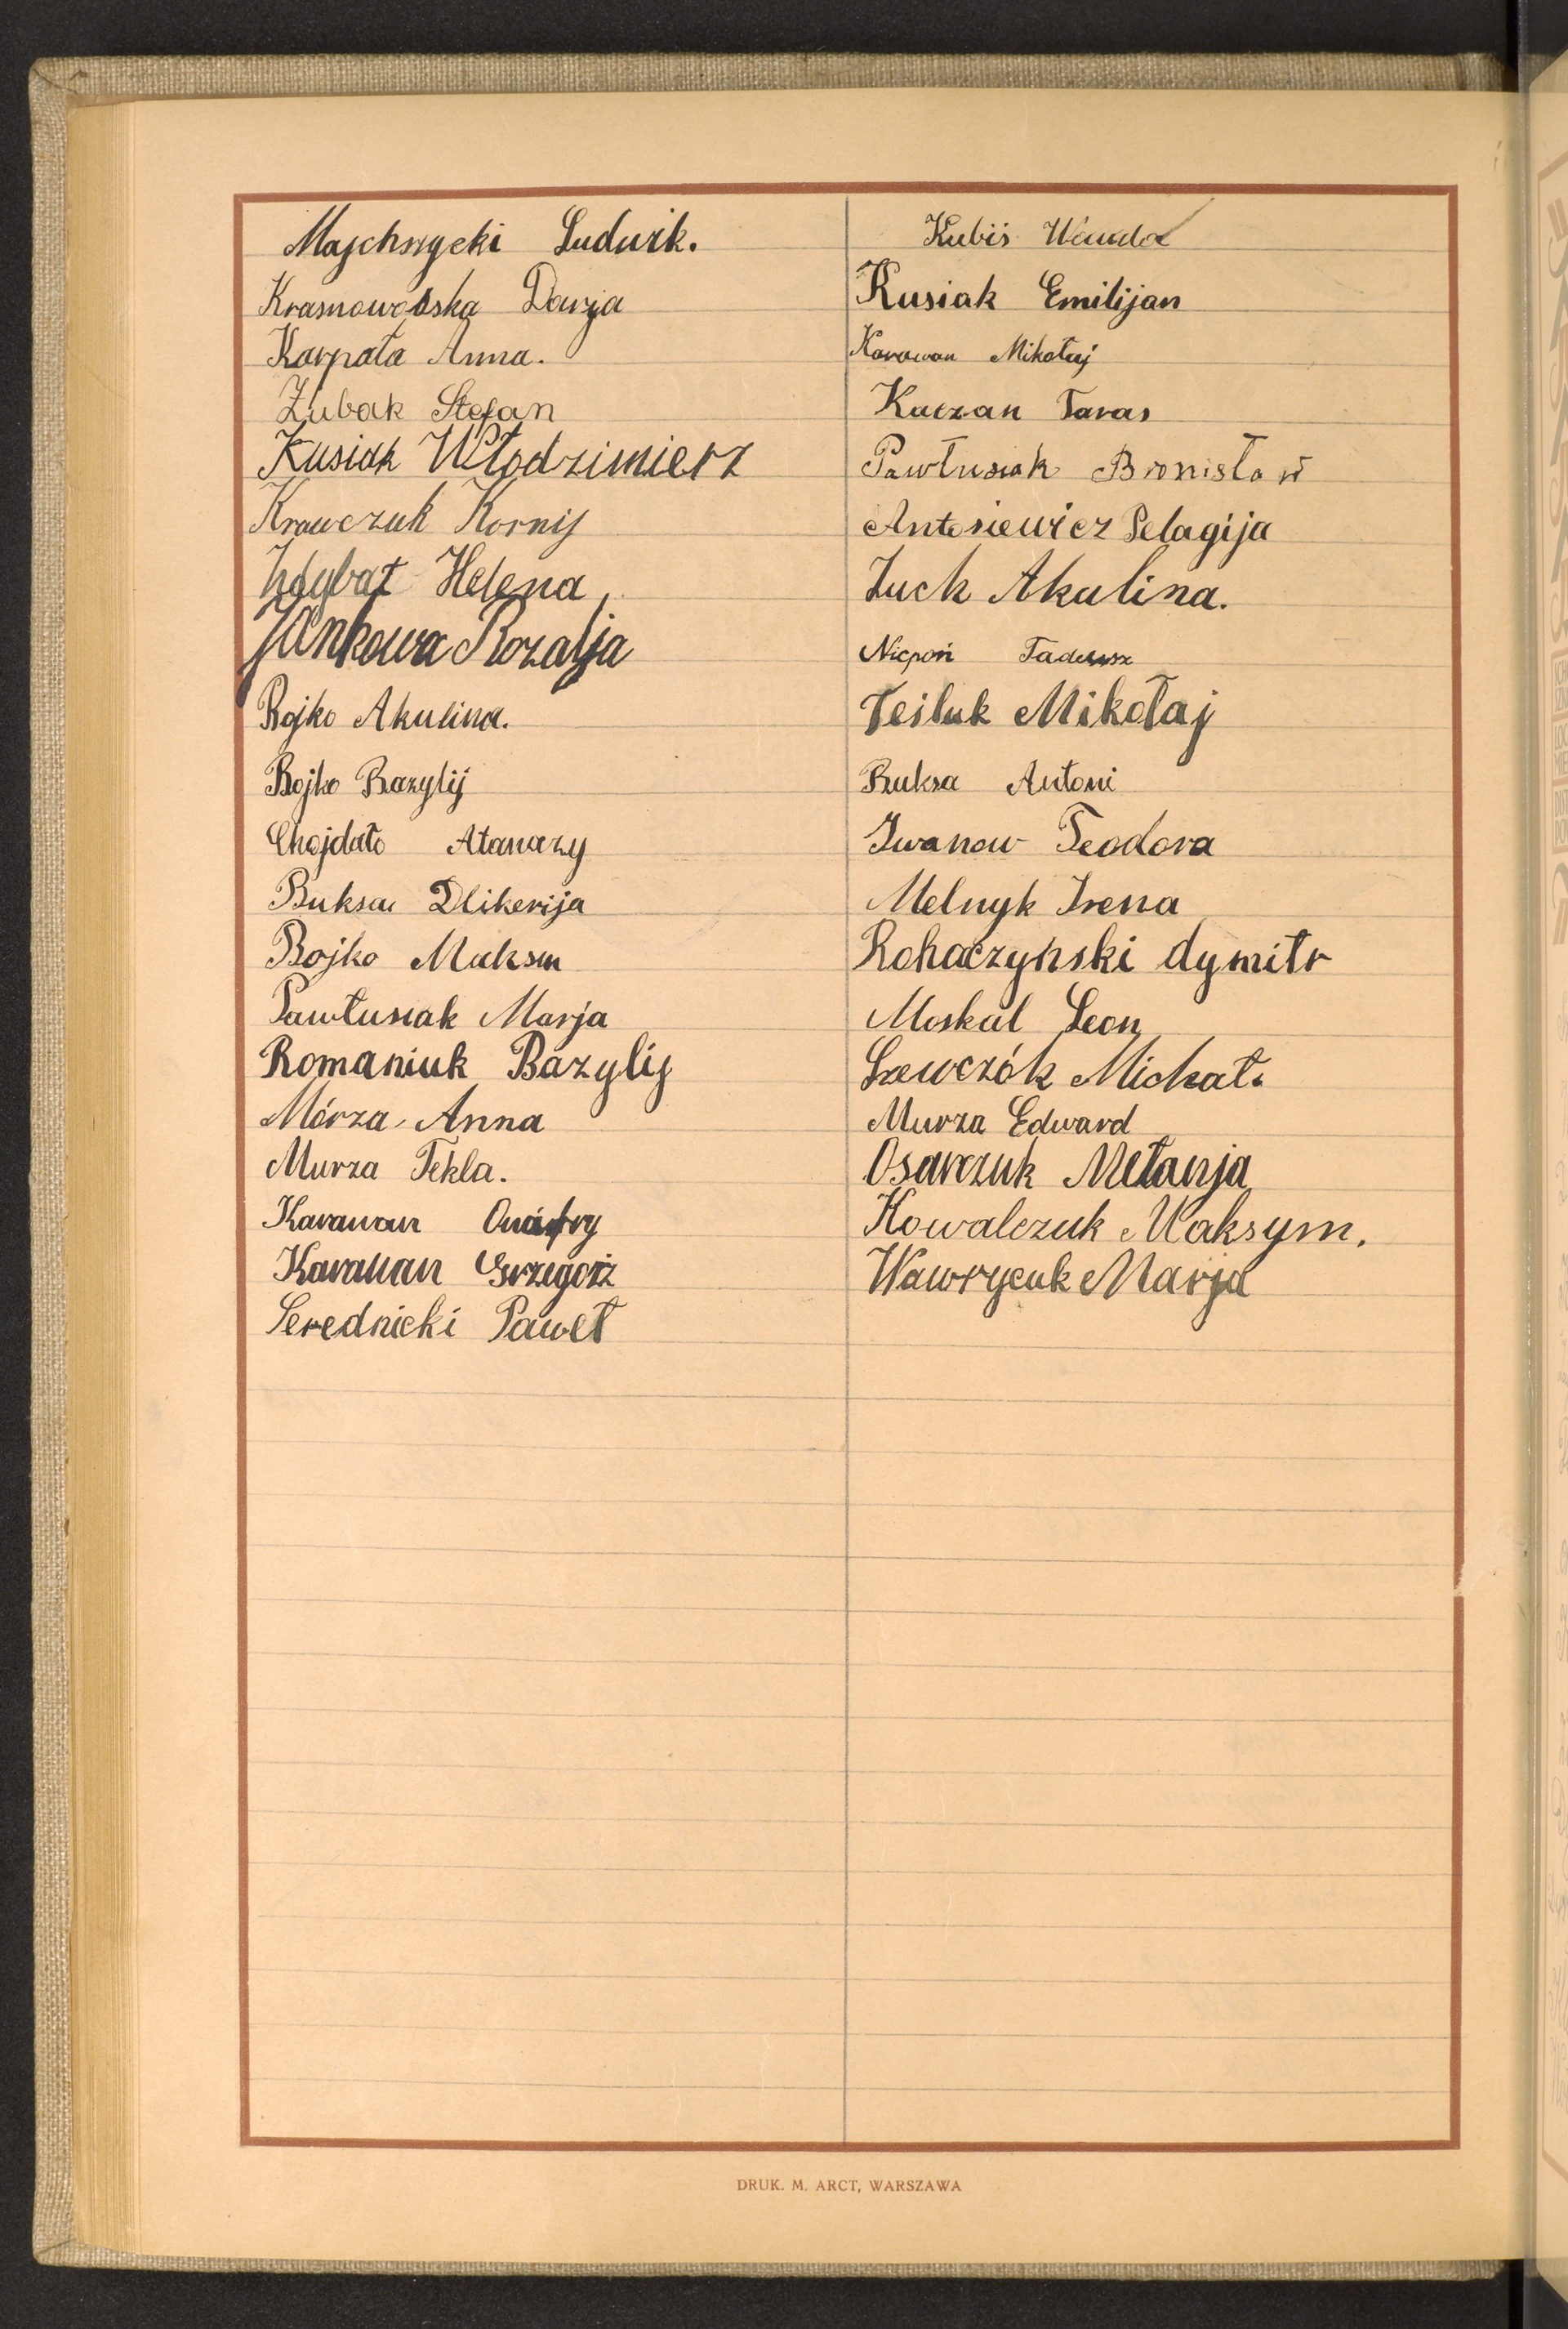 Majchrzycki Ludwik.
Krasnowolska Darja
Karpata Anna.
Zubak Stefan
Kusiak Włodzimierz
Krawczuk Kornij
Helena
Jankowa Rozalja
Bojko Akulina.
Bojko Bazylij
Chojdało Atanazy
Buksa Dlikerija
Bojko Maksm
Pawłusiak Marja
Romaniuk Bazylij
Mórza Anna
Murza Tekla.
Karawan Onufry
Karawan Grzegorz
Serednicki Paweł
Kubiś Wanda
Kusiak Emilijan
Karawan Mikołaj
Kaczan Taras
Pawłusiak Bronisław
Antosiewicz Pelagija
Łuck Akulina.
Nicpoń Tadeusz
Feiluk Mikołaj
Buksa Antoni
Iwanow Teodora
Melnyk Irena
Rohaczyński dymitr
Moskal Leon
Szewczók Michał.
Murza Edward
Osarczuk Mełanja
Kowalczuk Maksym.
Wawrycuk Marja
DRUK. M. ARCT, WARSZAWA